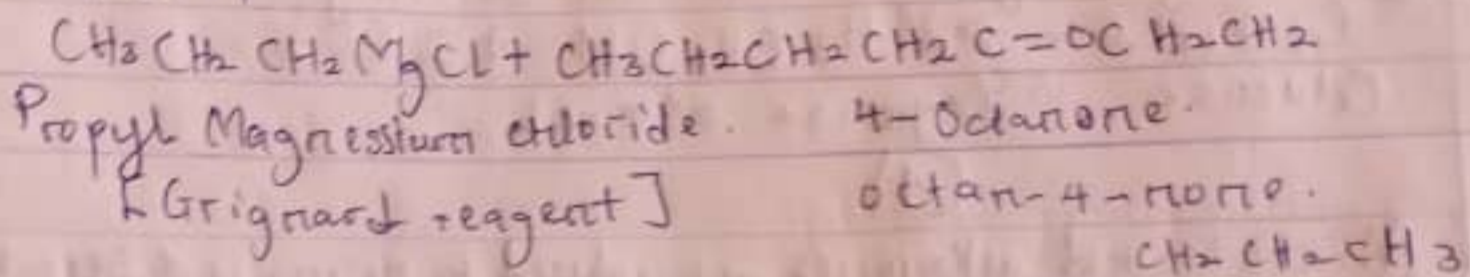 CH3 CH2 CH2 MgCl + CH3CH2CH2CH2 C=OC H2CH2
Propyl Magnessium chloride. 4-Octanone.
[Grignard reagent] octan-4-none.
CH2 CH2 CH3